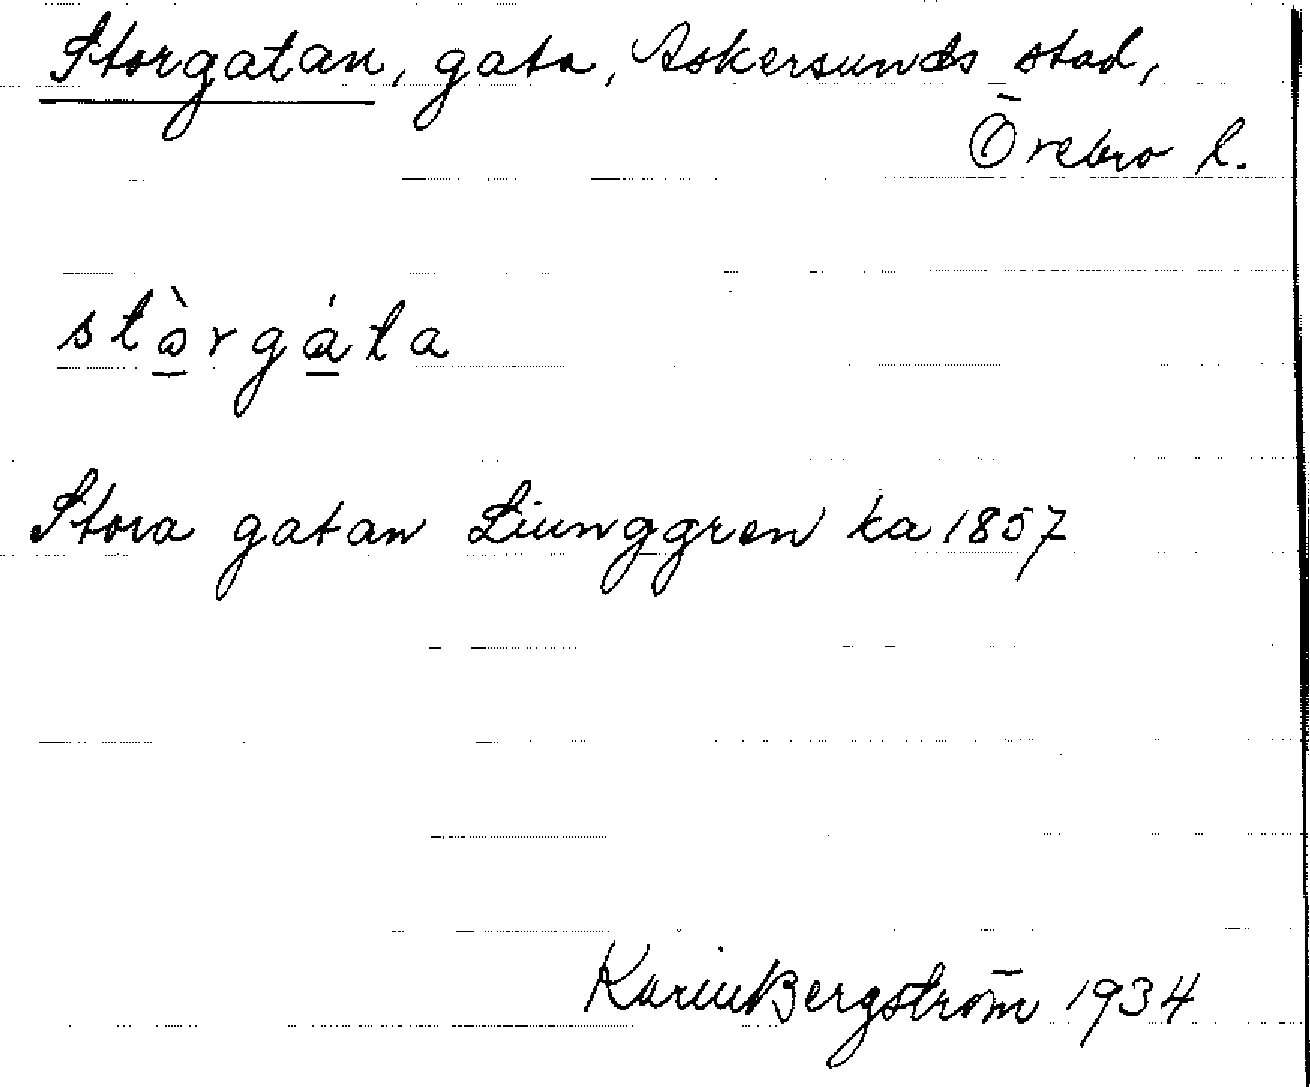 Storgatan, gata, Askersunds stad,
Örebro l.
stò̱rgá̱ta
Stora gatan Liunggren ka 1857
Karin Bergström 1934